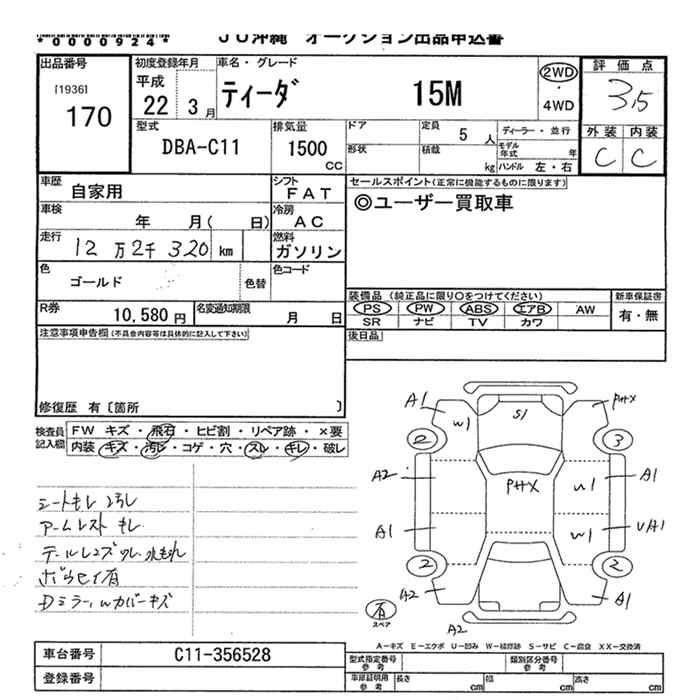 *0000924*
JU沖縄 オークション出品申込書
出品番号
[1936]
170
初度登録年月
平成
22 3月
車名・グレード
ティーダ 15M
2WD
・
4WD
評価点
3.5
外装 内装
C C
型式
DBA-C11
排気量
1500
CC
ドア
形状
定員 5 人
積載 kg
ディーラー・並行
モデル年式 年
ハンドル 左・右
車歴
自家用
シフト
FAT
車検
年 月( 日)
冷房
AC
走行
12万2千320 km
燃料
ガソリン
色
ゴールド
色替
色コード
R券
10,580円
名変通知期限
月 日
セールスポイント(正常に機能するものに限ります)
◎ユーザー買取車
装備品(純正品に限り○をつけてください)
PS PW ABS エアB AW
SR ナビ TV カワ
新車保証書
有・無
後日品
注意事項申告欄(不具合内容等は具体的に記入して下さい)
修復歴 有〔箇所 〕
検査員記入欄
FW キズ・飛石・ヒビ割・リペア跡・×要
内装 キズ・汚レ・コゲ・穴・スレ・キレ・破レ
アームレスト キレ
Dミラー,wカバーキズ
A1
W1
S1
PHX
2
3
A2
PHX
W1
A1
A1
W1
UA1
2
2
A2
A1
A2
有
スペア
A−キズ E−エクボ U−凹み W−補修跡 S−サビ C−腐食 XX−交換済
車台番号
C11-356528
登録番号
型式指定番号
参考
類別区分番号
参考
車庫証明用
参考
長さ cm
幅 cm
高さ cm